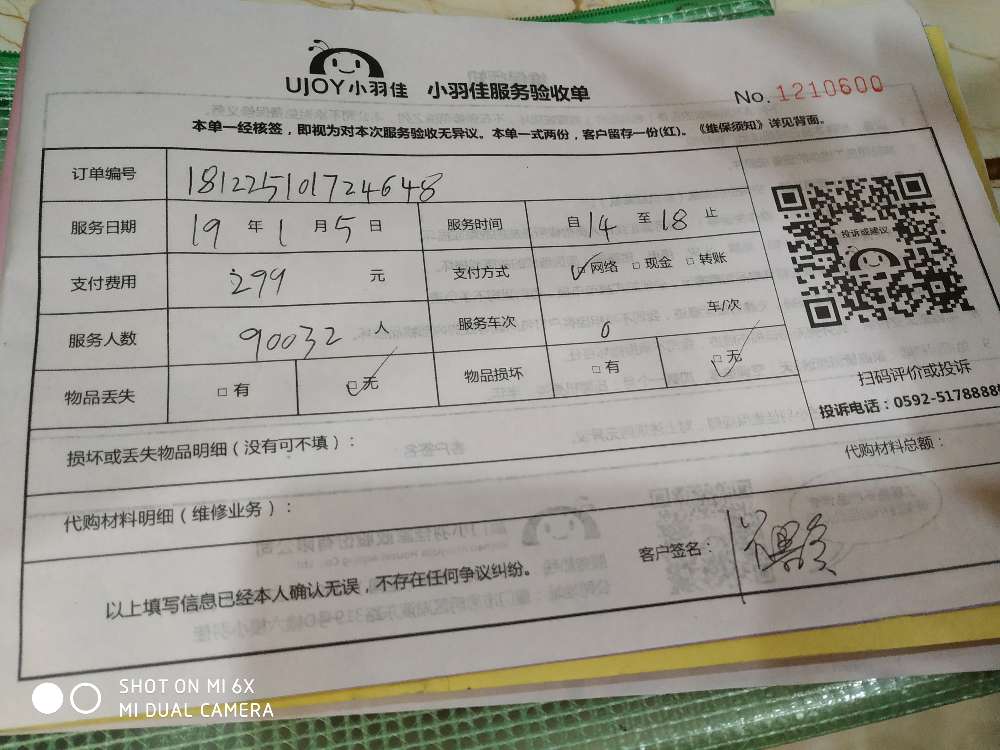 UJOY小羽佳 小羽佳服务验收单 No. 1210600
本单一经核签，即视为对本次服务验收无异议。本单一式两份，客户留存一份(红)。《维保须知》详见背面。
订单编号 181225101724648
服务日期 19 年 1 月 5 日 服务时间 自 14 至 18 止
支付费用 299 元 支付方式 ☑网络 □现金 □转账
服务人数 90032 人 服务车次 0 车/次
物品丢失 □有 ☑无 物品损坏 □有 ☑无
投诉或建议
扫码评价或投诉
投诉电话：0592-5178888
损坏或丢失物品明细（没有可不填）：
代购材料明细（维修业务）： 代购材料总额：
以上填写信息已经本人确认无误，不存在任何争议纠纷。 客户签名：
SHOT ON MI 6X
MI DUAL CAMERA